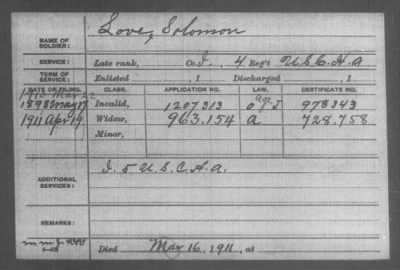 NAME OF SOLDIER: Love, Solomon
SERVICE: Late rank, Co. I, 4 Reg't U.S.C.H.A
TERM OF SERVICE: Enlisted , 1 Discharged , 1
DATE OF FILING. CLASS. APPLICATION NO. LAW. CERTIFICATE NO.
1898 May 17 Invalid, 1207313 978343
1911 Apr 19 Widow, 963.154 a 728.758
Minor,
ADDITIONAL SERVICES: I. 5 U.S.C.H.A.
REMARKS:
Died May 16, 1911, at